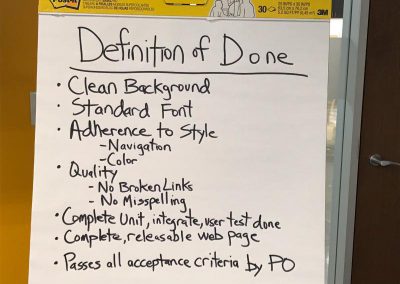 Post-it
30
3M
Definition of Done
• Clean Background
• Standard Font
• Adherence to Style
- Navigation
- Color
• Quality
- No Broken Links
- No Misspelling
• Complete Unit, integrate, user test done
• Complete, releasable web page
• Passes all acceptance criteria by PO